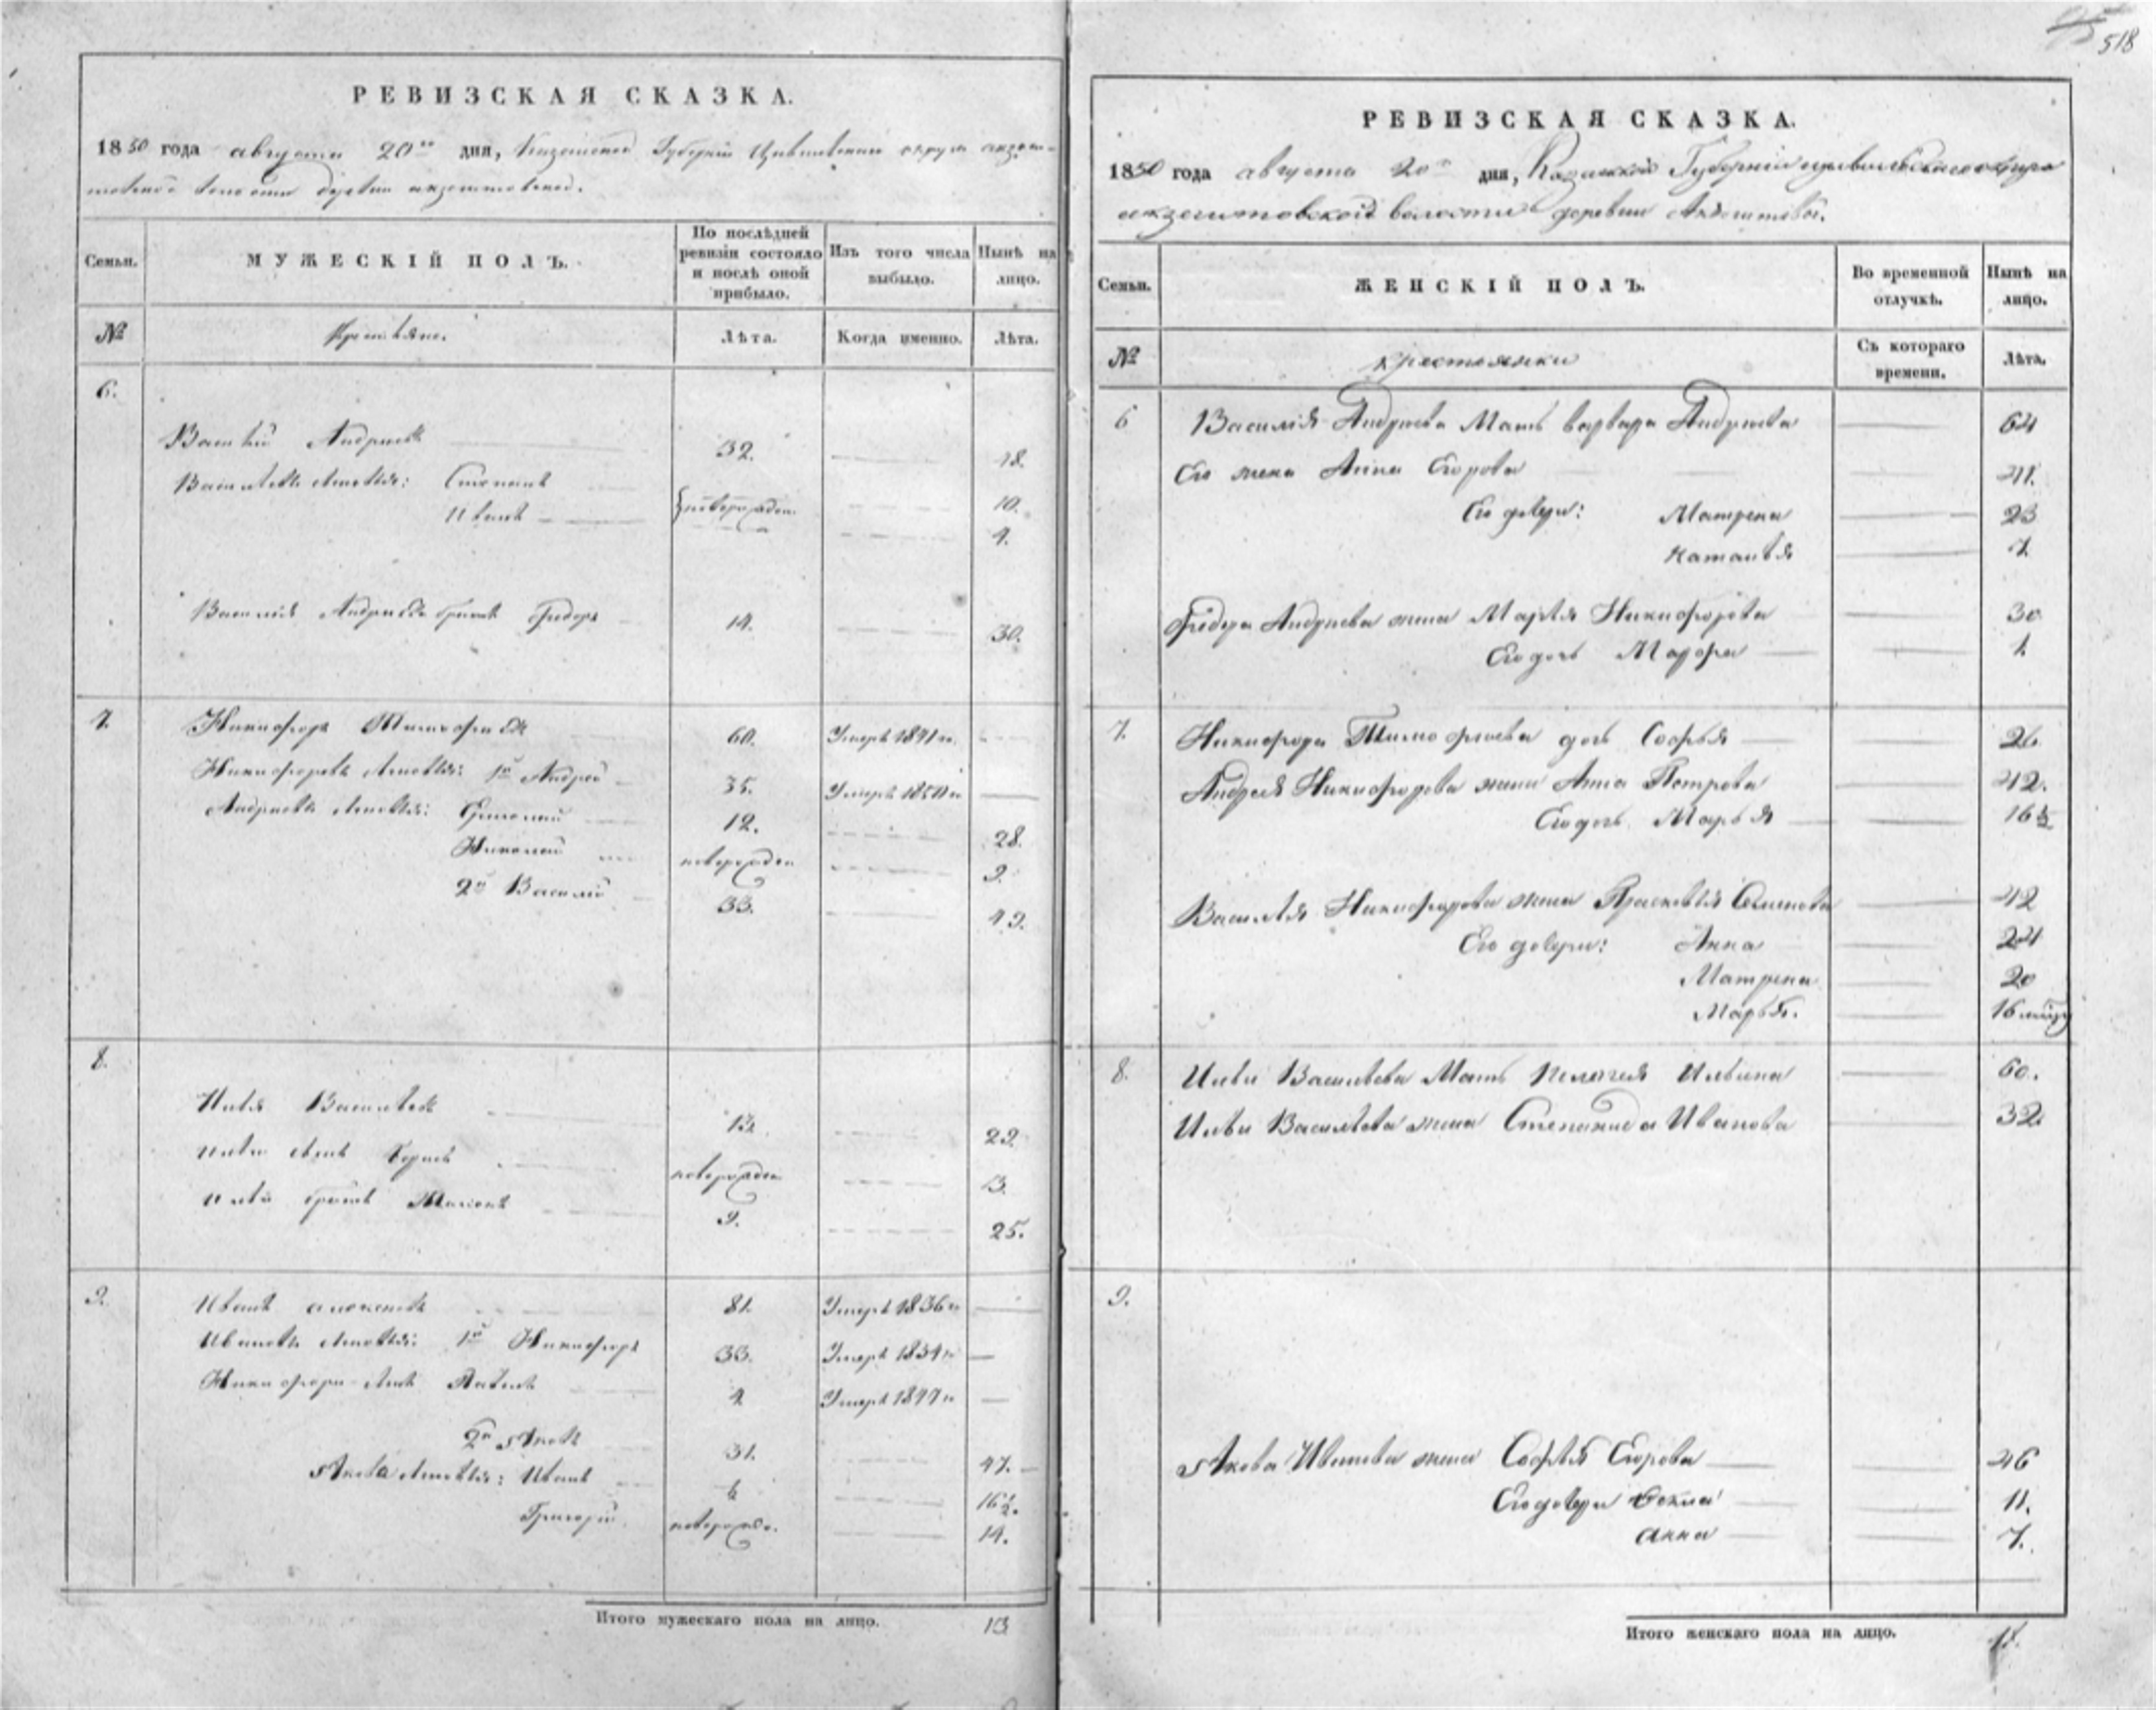 518
РЕВИЗСКАЯ СКАЗКА.
1850 года августа 20го дня, Казанской Губерніи Цивильскаго округа
волости деревни
Семьи.
МУЖЕСКІЙ ПОЛЪ.
По послѣдней ревизіи состояло и послѣ оной прибыло.
Изъ того числа выбыло.
Нынѣ на лицо.
№
Крестьяне.
Лѣта.
Когда именно.
Лѣта.
6.
Василій Андреевъ 32. 48.
Васильевы сыновья: Степанъ новорожден. 10.
Иванъ 4.
Василія Андреева братъ Федоръ 14. 30.
7. Никифоръ Тимофеевъ 60. Умеръ 1841го
Никифоровы сыновья: 1й Андрей 35. Умеръ
Андреевы сыновья: 12. 28.
Николай новорожден 9.
2й Василій 33. 49.
8.
Илья Васильевъ 13. 29.
Ильи сынъ новорожден 3.
Ильи братъ 9. 25.
9. Иванъ 81. Умеръ 1836го
Ивановы сыновья: 1й Никифоръ 33. Умеръ 1834го
Никифора сынъ Павелъ 4 Умеръ
2й Яковъ 31. 47.
Якова сыновья: Иванъ ½ 16½.
Григорій новорожде. 14.
Итого мужескаго пола на лицо. 13
РЕВИЗСКАЯ СКАЗКА.
1850 года августа 20го дня, Казанской Губерніи Цивильскаго округа
волости деревни
Семьи.
ЖЕНСКІЙ ПОЛЪ.
Во временной отлучкѣ.
Нынѣ на лицо.
№
крестьянки
Съ котораго времени.
Лѣта.
6 Василія Андреева Мать варвара Андреева 64
Его жена Анна Егорова 41.
Его дочери: Матрена 23
Наталья 7.
Федора Андреева жена Марья Никифорова 30
Его дочь 1.
7. Никифора Тимофеева дочь Софья 26.
Андрея Никифорова жена Анна Петрова 42.
Его дочь Марья 16½
Василья Никифорова жена Прасковья Семенова 42
Его дочери: Анна 24
Матрена 20
Марья. 16
8. Ильи Васильева Мать Пелагея Ильина 60.
Ильи Васильева жена Степанида Иванова 32.
9.
Якова Иванова жена Софья Егорова 46
Его дочери 11.
анна 7.
Итого женскаго пола на лицо.